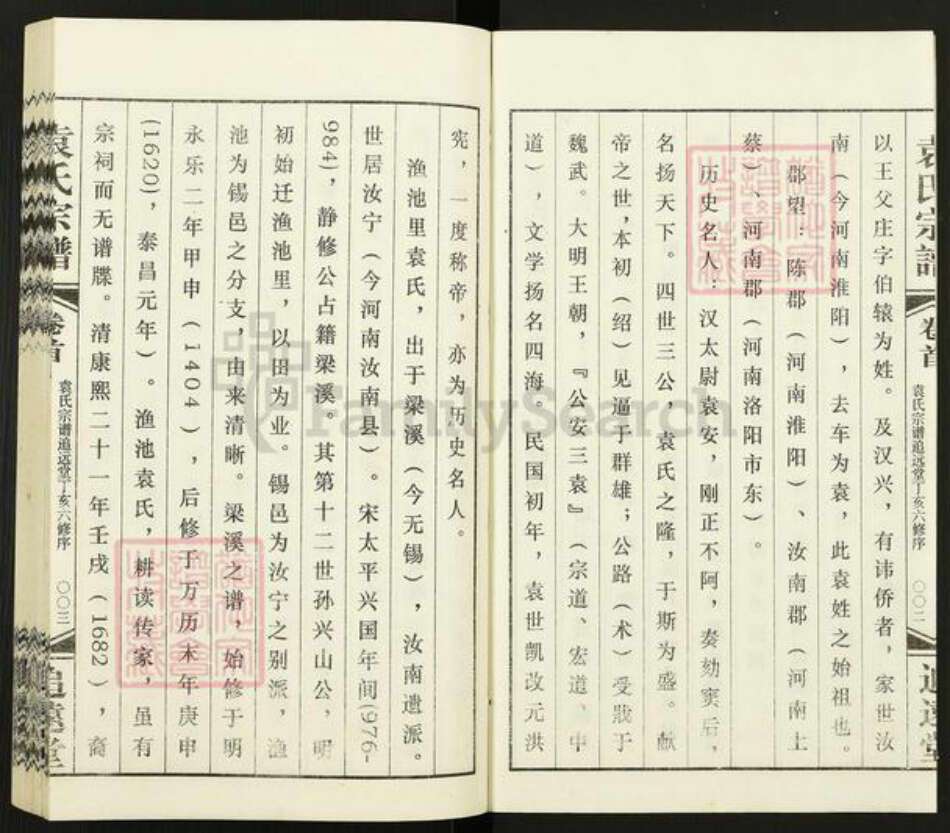 袁氏宗譜
卷首
袁氏宗谱追远堂丁亥六修序
〇〇二
追遠堂
以王父庄字伯辕为姓。及汉兴，有讳侨者，家世汝
南（今河南淮阳），去车为袁，此袁姓之始祖也。
郡望：陈郡（河南淮阳）、汝南郡（河南上
蔡）、河南郡（河南洛阳市东）。
历史名人：汉太尉袁安，刚正不阿，奏劾窦后，
名扬天下。四世三公，袁氏之隆，于斯为盛。献
帝之世，本初（绍）见逼于群雄；公路（术）受戮于
魏武。大明王朝，『公安三袁』（宗道、宏道、中
道），文学扬名四海。民国初年，袁世凯改元洪
宪，一度称帝，亦为历史名人。
渔池里袁氏，出于梁溪（今无锡），汝南遗派。
世居汝宁（今河南汝南县）。宋太平兴国年间(976-
984)，静修公占籍梁溪。其第十二世孙兴山公，明
初始迁渔池里，以田为业。锡邑为汝宁之别派，渔
池为锡邑之分支，由来清晰。梁溪之谱，始修于明
永乐二年甲申（1404），后修于万历末年庚申
(1620)，泰昌元年）。渔池袁氏，耕读传家，虽有
宗祠而无谱牒。清康熙二十一年壬戌（1682），裔
袁氏宗譜
卷首
袁氏宗谱追远堂丁亥六修序
〇〇三
追遠堂
FamilySearch